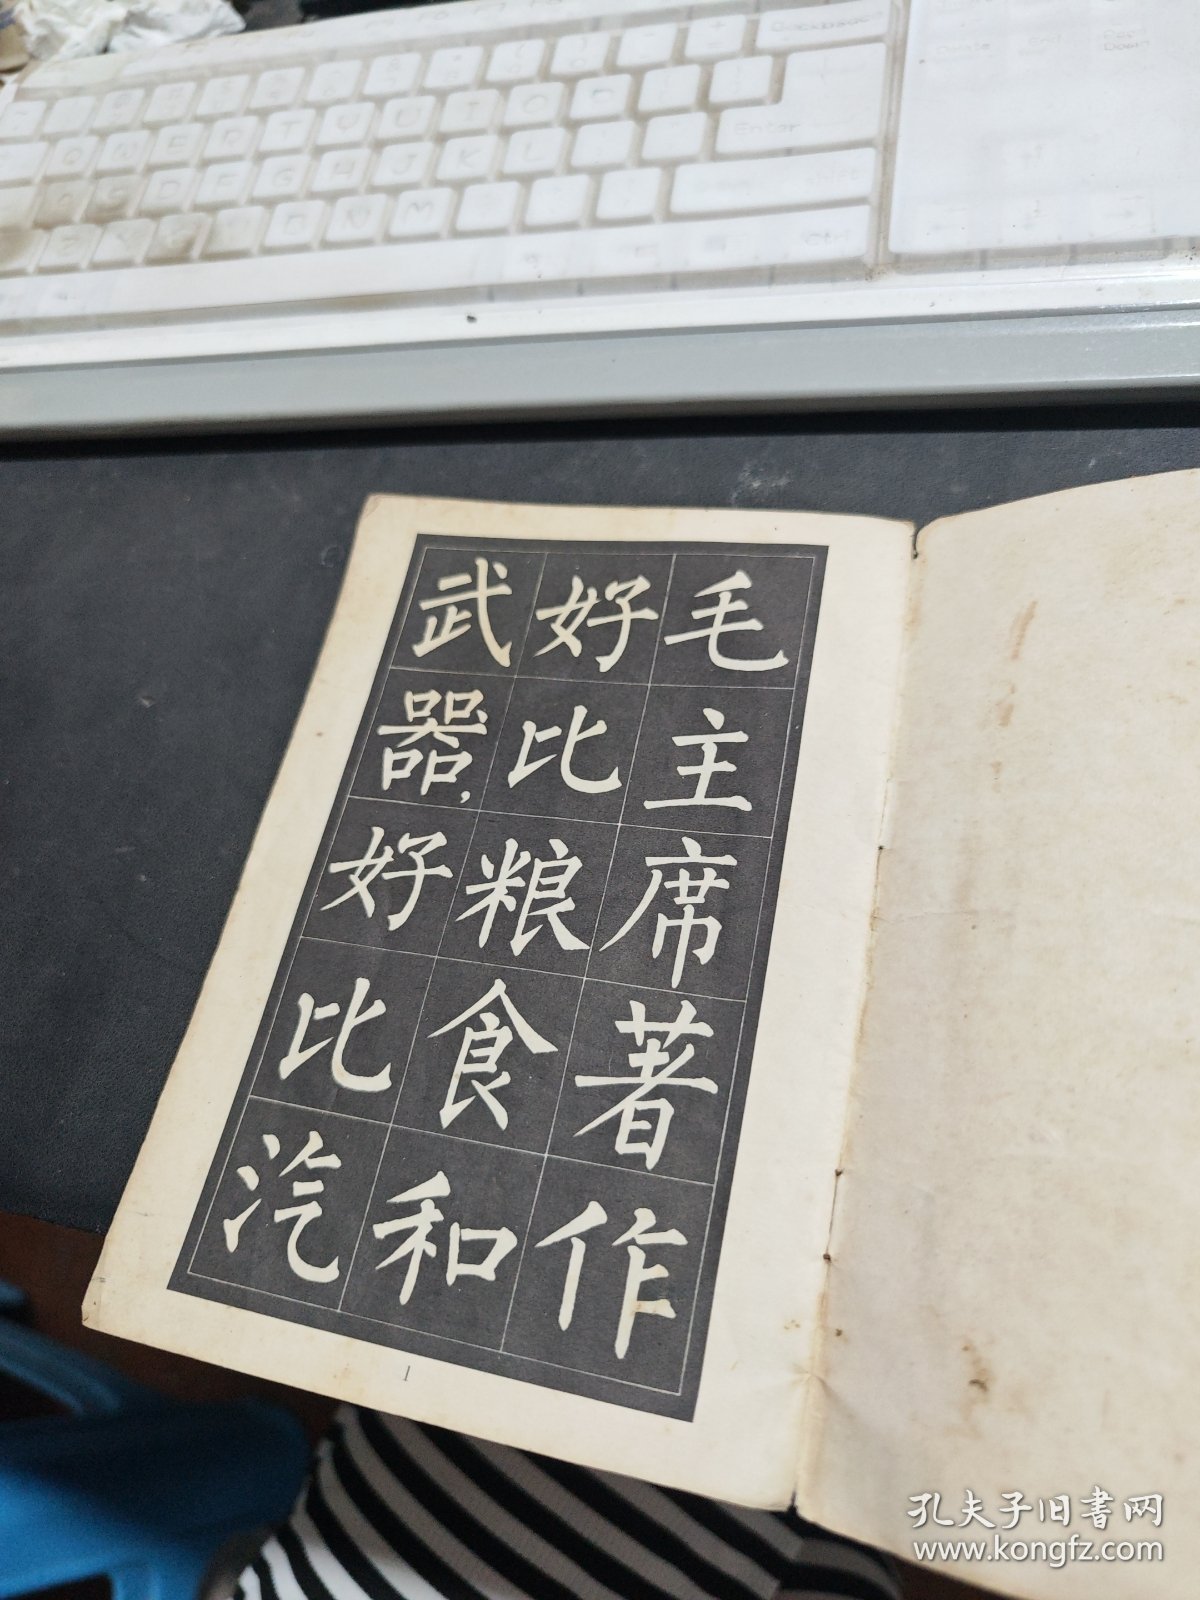 毛主席著作
好比粮食和
武器，
好比汽
1
Enter
Ctrl
孔夫子旧书网
www.kongfz.com